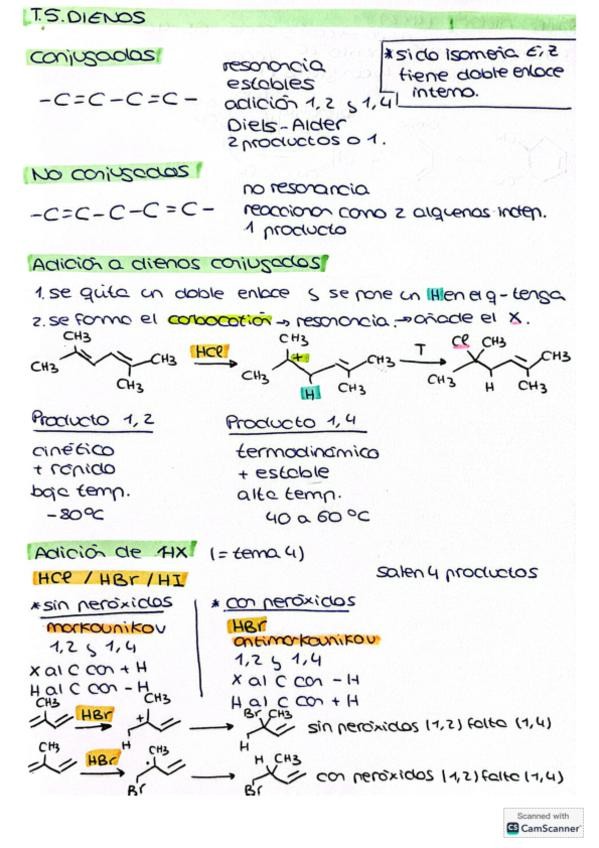 T.5. DIENOS
Conjugados
-C=C-C=C-
resonancia
estables
adición 1,2 y 1,4
Diels-Alder
2 productos o 1.
*sido Isomeria E,Z
tiene doble enlace
interno.
No conjugados
-C=C-C-C=C-
no resonancia
reaccionan como 2 alquenos indep.
1 producto
Adición a dienos conjugados
1. se quita un doble enlace y se pone un H en el q-tenga
2. se forma el carbocatión → resonancia. → añade el X.
CH3 CH3 CH3 CH3
HCl
CH3 + CH3 H CH3 CH3
T
Cl CH3 CH3 CH3 H CH3
Producto 1,2
cinético
+ rápido
baja temp.
-80ºC
Producto 1,4
termodinámico
+ estable
alta temp.
40 a 60ºC
Adición de HX (= tema 4)
HCl / HBr / HI
salen 4 productos
* sin peróxidos
markounikov
1,2 y 1,4
X al C con + H
H al C con - H
* con peróxidos
HBr
antimarkounikov
1,2 y 1,4
X al C con - H
H al C con + H
CH3 HBr CH3 + H Br CH3 H sin peróxidos (1,2) falta (1,4)
CH3 HBr CH3 Br H CH3 Br con peróxidos (1,2) falta (1,4)
Scanned with
CS CamScanner